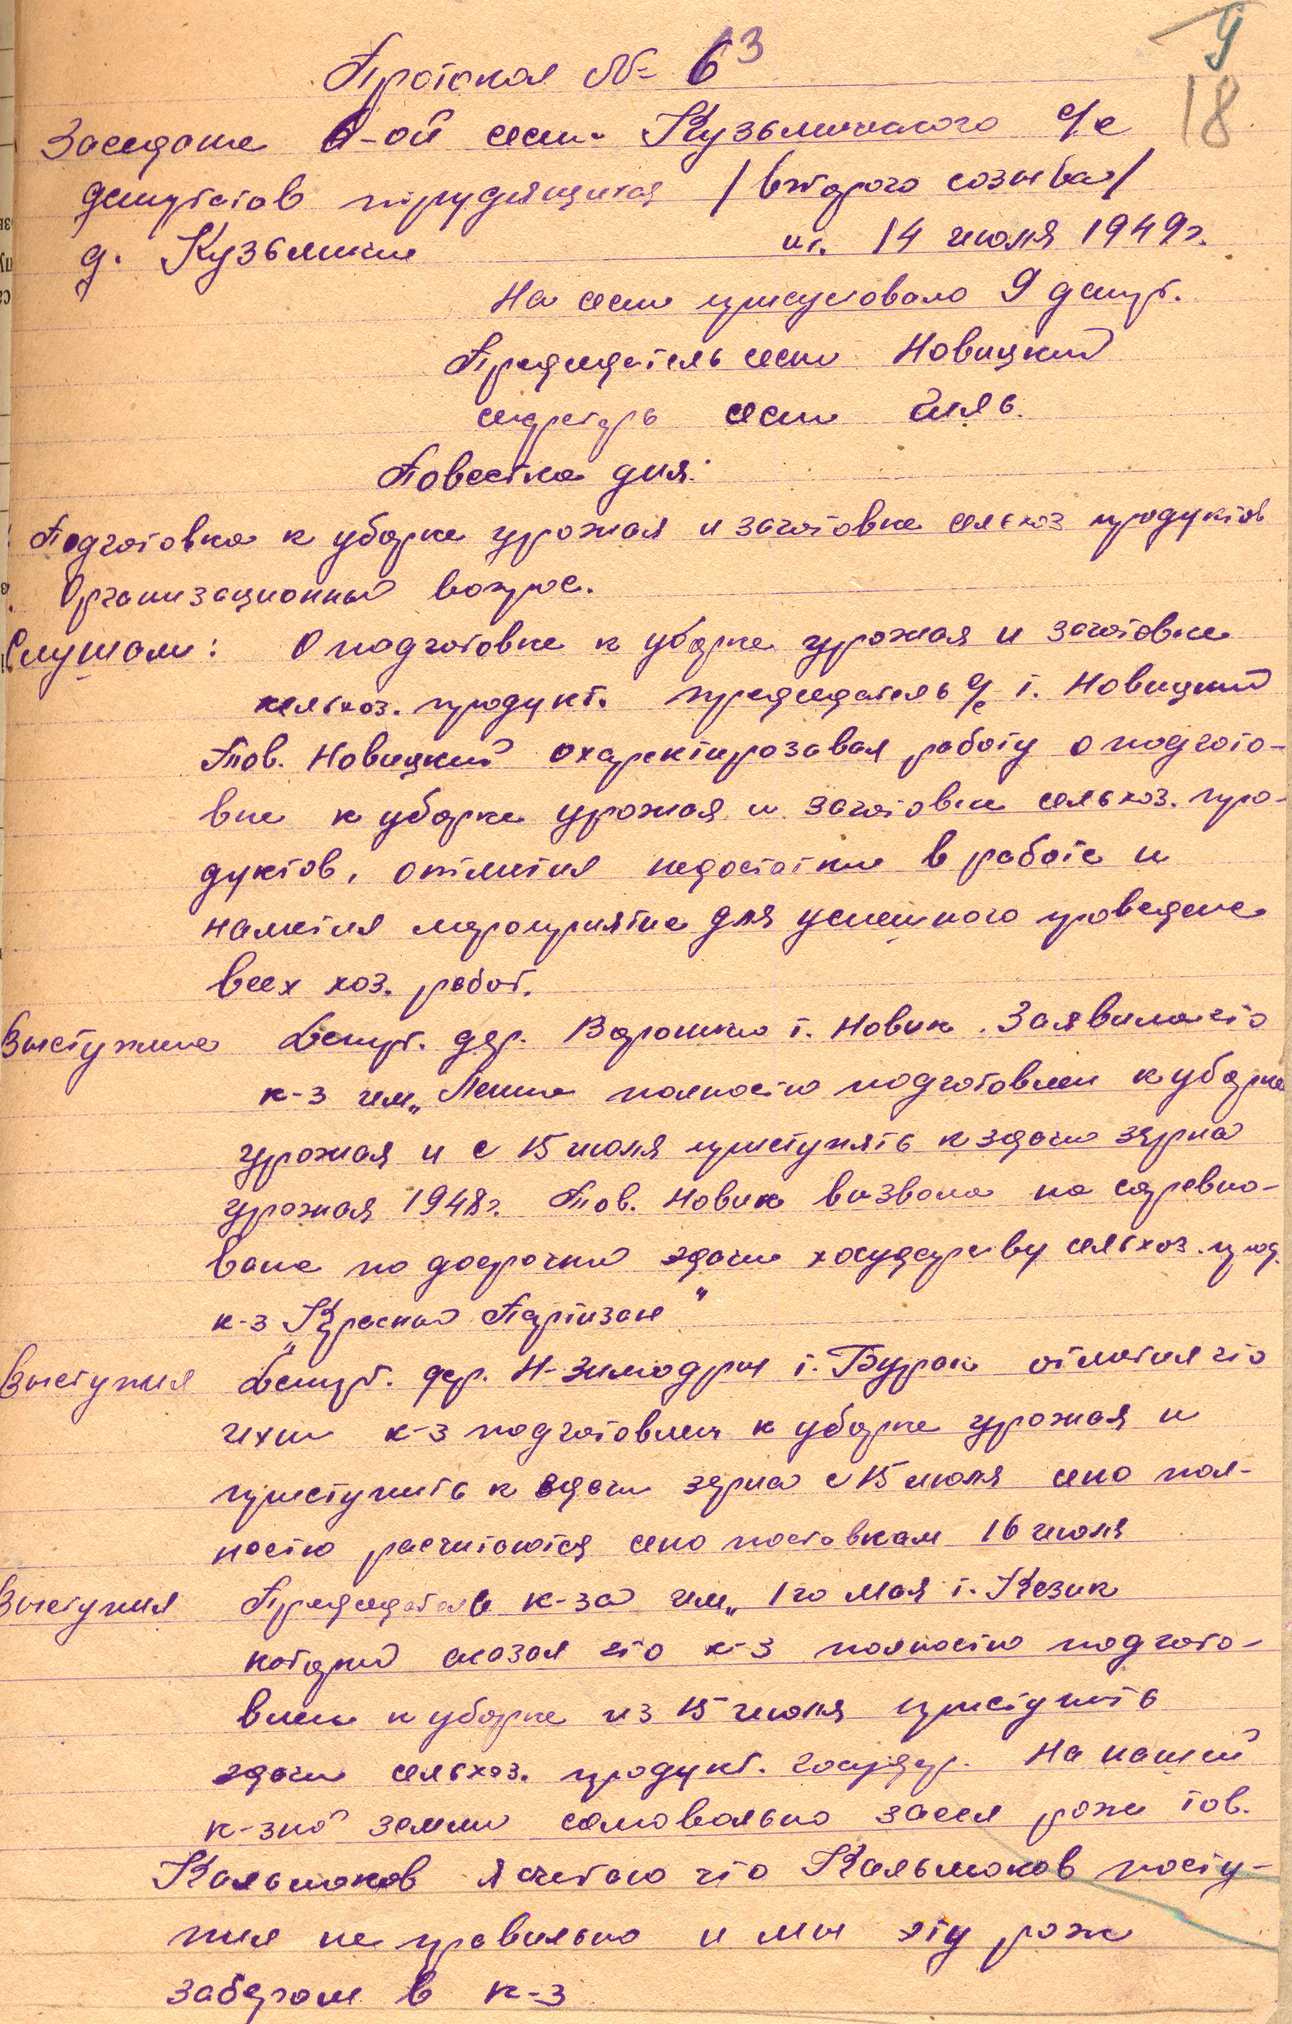 9
18
Протокол № 63
Заседание 6-ой сесии Кузьминского с/с
депутатов трудящихся /второго созыва/
д. Кузьмичи от. 14 июля 1949г.
На сесии присуствовало 9 депут.
Председатель сесии Новицкий
секретарь сесии Гиль.
Повестка дня:
Подготовка к уборке урожая и заготовке сельхоз продуктов
Организационный вопрос.
Слушали: О подготовке к уборке урожая и заготовке
сельхоз. продукт. председатель с/с т. Новицкий
Тов. Новицкий охаректирозавал работу о подгото-
вке к уборке урожая и заготовке сельхоз. про-
дуктов, отметил недостатки в работе и
наметил мероприятие для успешного проведение
всех хоз. работ.
Выступила Депут. дер. Ворошки т. Новик. Заявила что
к-з им„ Ленина полностю подготовлен к уборке
урожая и с 15 июля приступять к здачи зерна
урожая 1948г. Тов. Новик визвала на соревно-
вание по досрочной здачи хосударству сельхоз. прод.
к-з „Красный Партизан"
Выступил Депут. дер. Н-Зимодры т. Бурак отметил что
ихни к-з подготовлен к уборке урожая и
приступить к здачи зерна с 15 июля сено пол-
ностю расчитаются сено поставкам 16 июля
Выступил Председатель к-за им„ 1го мая т. Козик
который сказал что к-з полностю подгото-
влен к уборке и з 15 июля приступить
здачи сельхоз. продукт. государ. На нашей
к-зной земли самовольно засеял рожи тов.
Кальмоков я считаю что Кальмоков посту-
пил не правильно и мы эту рож
забером в к-з